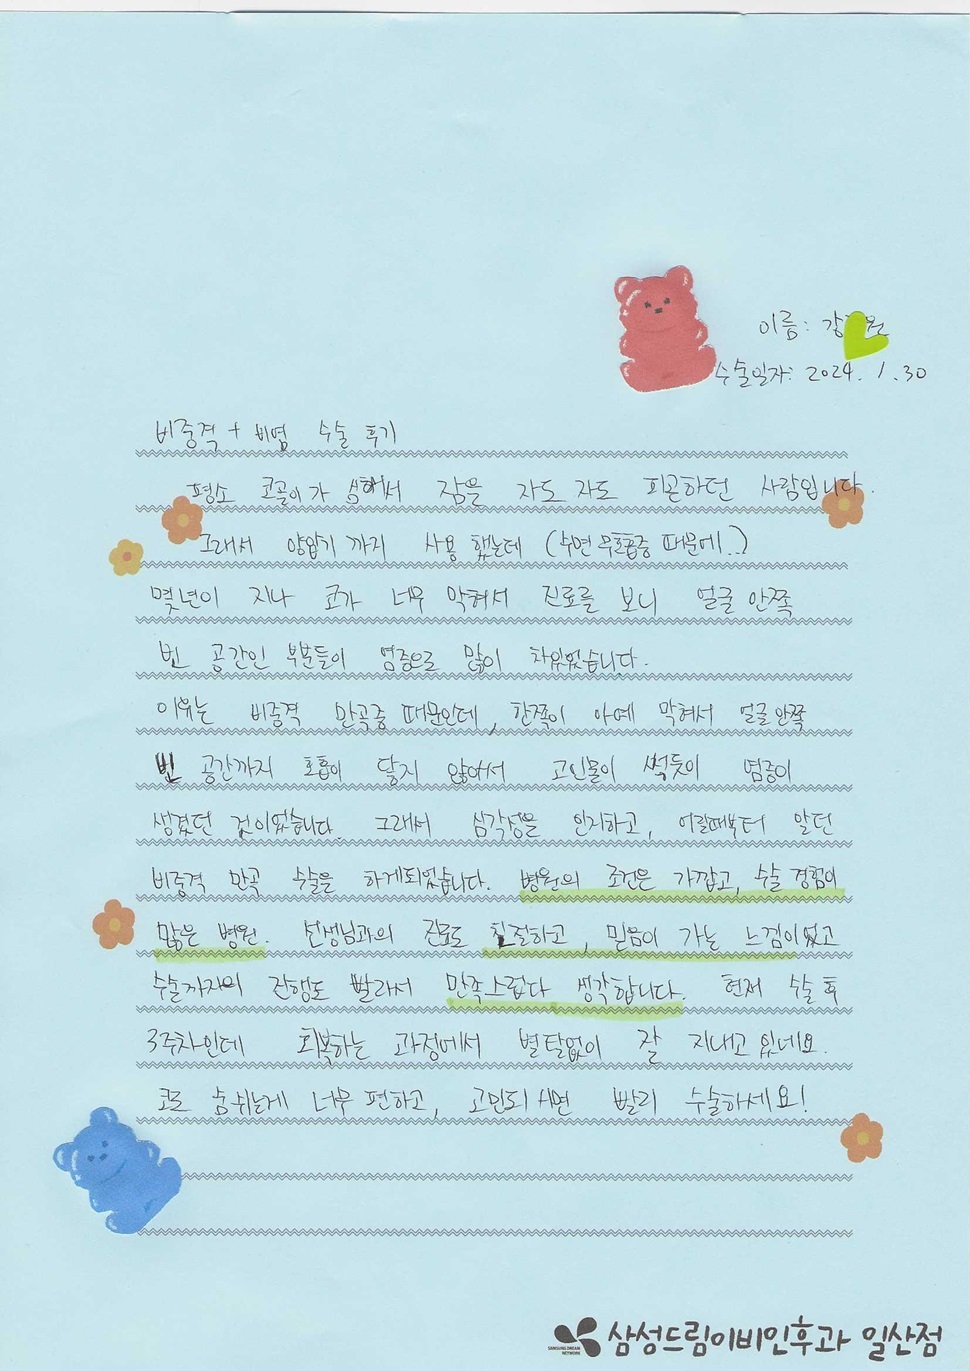 이름: 강 원
수술일자: 2024. 1. 30
비중격 + 비염 수술 후기
평소 코골이가 심해서 잠을 자도 자도 피곤하던 사람입니다.
그래서 양압기까지 사용했는데 (수면 무호흡증 때문에..)
몇년이 지나 코가 너무 막혀서 진료를 보니 얼굴 안쪽
빈 공간인 부분들이 염증으로 많이 차있었습니다.
이유는 비중격 만곡증 때문인데, 한쪽이 아예 막혀서 얼굴 안쪽
빈 공간까지 호흡이 닿지 않아서 고인물이 썩듯이 염증이
생겼던 것이었습니다. 그래서 심각성을 인지하고, 어릴때부터 앓던
비중격 만곡 수술을 하게되었습니다. 병원의 조건은 가깝고, 수술 경험이
많은 병원. 선생님과의 진료도 친절하고, 믿음이 가는 느낌이었고
수술까지의 진행도 빨라서 만족스럽다 생각합니다. 현재 수술 후
3주차인데 회복하는 과정에서 별탈없이 잘 지내고 있네요.
코로 숨쉬는게 너무 편하고, 고민되시면 빨리 수술하세요!
SAMSUNG DREAM NETWORK
삼성드림이비인후과 일산점